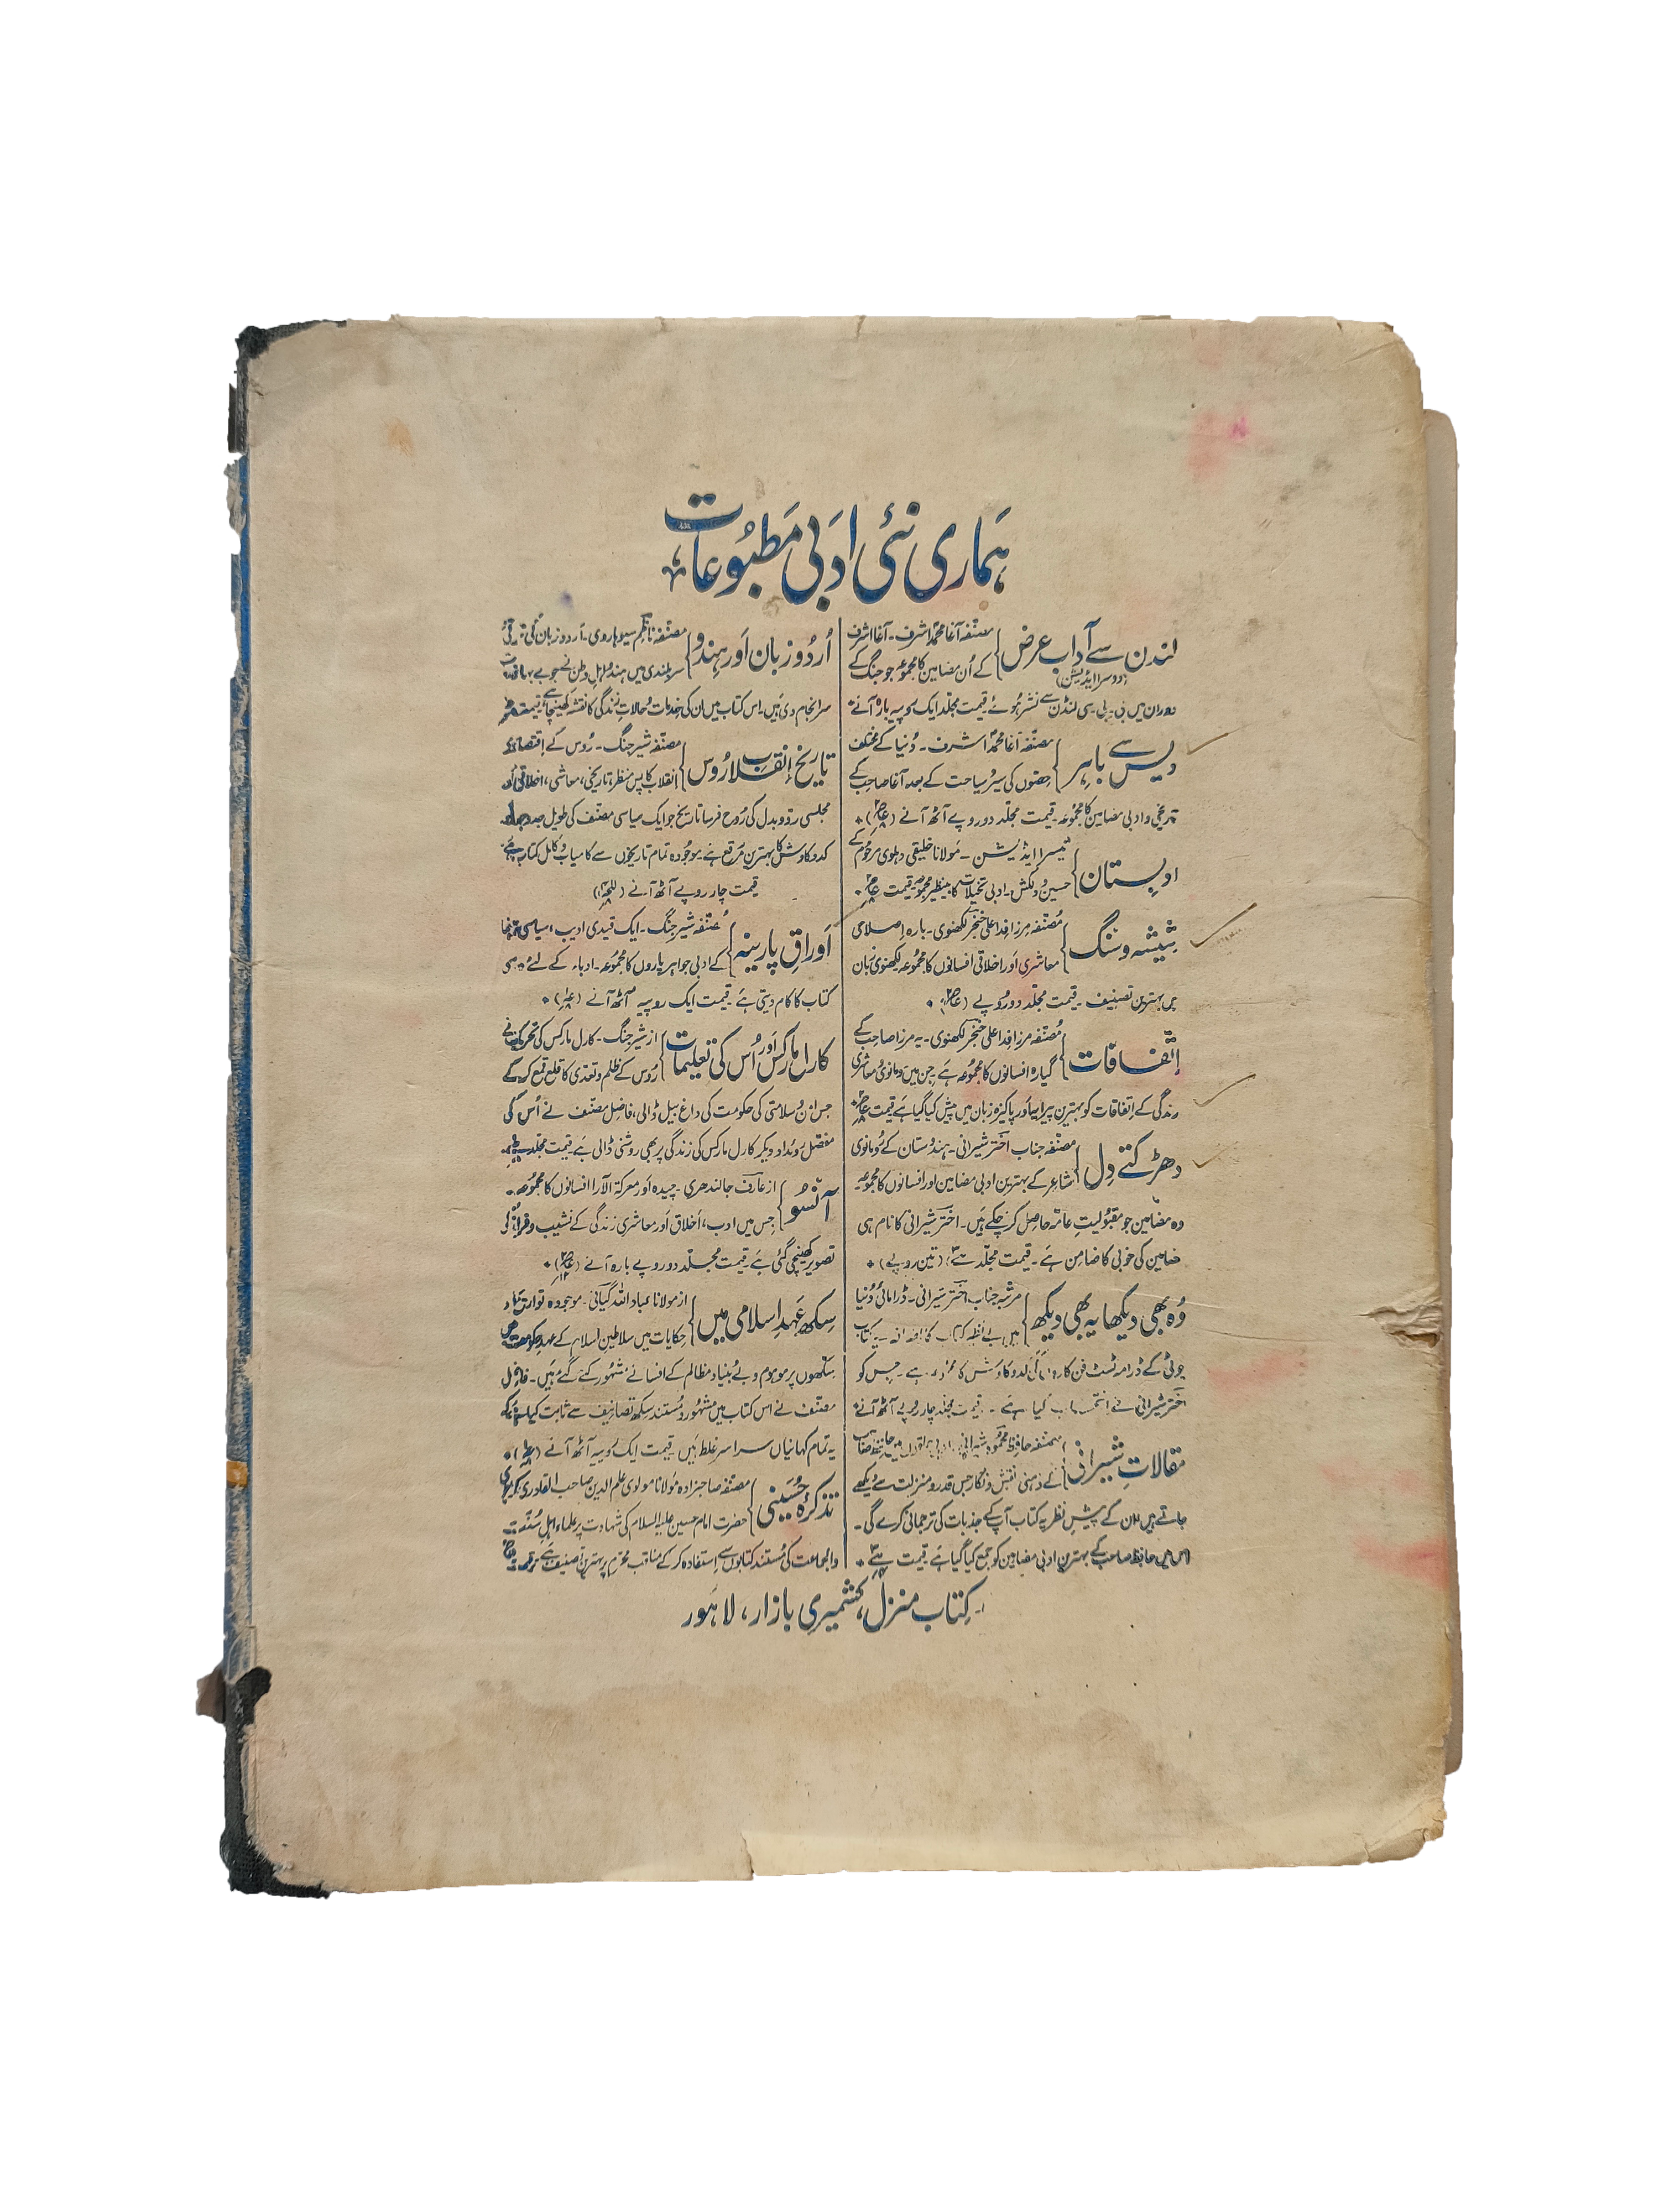 ہماری نئی ادبی مطبوعات
لندن سے آداب عرض
(دوسرا ایڈیشن)
مصنّفہ آغا محمد اشرف۔ آغا اشرف
کے اُن مضامین کا مجموعہ جو جنگ کے
دوران میں بی۔ بی۔ سی لنڈن سے نشر ہوئے۔ قیمت مجلد ایک روپیہ بارہ آنے
دیس سے باہر
مصنّفہ آغا محمد اشرف۔ دُنیا کے مختلف
حِصّوں کی سیر و سیاحت کے بعد آغا صاحب کے
تاریخی و ادبی مضامین کا مجموعہ۔ قیمت مجلّد دو روپے آٹھ آنے
ادبستان
تیسرا ایڈیشن۔ مولانا خلیقی دہلوی مرحوم کے
حسین و دلکش۔ ادبی تخیلات کا بینظیر مجموعہ۔ قیمت
شیشہ و سنگ
مُصنّفہ مرزا فدا علی خنجر لکھنوی۔ بارہ اِصلاحی
معاشری اور اخلاقی افسانوں کا مجموعہ لکھنوی زبان
میں بہترین تصنیف۔ قیمت مجلّد دو روپے
اِتّفاقات
مُصنّفہ مرزا فدا علی خنجر لکھنوی۔ یہ مرزا صاحب کے
گیارہ افسانوں کا مجموعہ ہے۔ جن میں رومانوی و معاشری
زندگی کے اِتفاقات کو بہترین پیرایہ اور پاکیزہ زبان میں پیش کیا گیا ہے قیمت
دھڑکتے دِل
مصنّفہ جناب اختر شیرانی۔ ہندُستان کے رُومانوی
شاعر کے بہترین ادبی مضامین اور افسانوں کا مجموعہ۔
وہ مضامین جو مقبُولیتِ عامّہ حاصِل کر چکے ہیں۔ اختر شیرانی کا نام ہی
مضامین کی خوبی کا ضامِن ہے۔ قیمت مجلّد (تین روپے)
وُہ بھی دیکھا یہ بھی دیکھ
مرتبہ جناب اختر شیرانی۔ ڈرامائی دُنیا
میں بے نظیر کتاب کا اضافہ۔ یہ کتاب
چوٹی کے ڈرامہ ٹسٹ فن کاروں کی کدوکاوش کا ہے۔ جِس کو
اختر شیرانی نے انتخاب کیا ہے۔ قیمت مجلد چار روپے آٹھ آنے
مقالاتِ شیرانی
مصنفہ حافظ محمود شیرانی۔ ادبی حلقوں میں حافظ صاحب
کے ذہنی نقش و نگار جس قدر و منزلت سے دیکھے
جاتے ہیں ان کے پیشِ نظر یہ کتاب آپ کے جذبات کی ترجمانی کرے گی۔
اس میں حافظ صاحب کے بہترین ادبی مضامین کو جمع کیا گیا ہے قیمت
اُردُو زبان اَور ہِندُو
مصنّفہ ناظم سیوہاروی۔ اُردو زبان کی ترقی و
سربلندی میں ہندو اہلِ وطن نے جو بے بہا خدمات
سر انجام دی ہیں۔ اس کتاب میں ان کی خدمات و حالاتِ زندگی کا نقشہ کھینچا ہے۔ قیمت
تاریخ اِنقلابِ رُوس
مصنّفہ شیر جنگ۔ رُوس کے اِقتصادی
انقلاب کا پس منظر، تاریخی، معاشی، اخلاقی اور
مجلسی ردّ و بدل کی رُوح فرسا تاریخ جو ایک سیاسی مصنّف کی طویل جدوجہد
کدوکاوش کا بہترین مُرقع ہے۔ موجُودہ تمام تاریخوں سے کامیاب و کامل کتاب ہے
قیمت چار روپے آٹھ آنے
اَوراقِ پارینہ
مُصنّفہ شیر جنگ۔ ایک قیدی ادیب، سیاسی رہنما
کے ادبی جواہر پاروں کا مجمُوعہ۔ ادباء کے لئے
کتاب کا کام دیتی ہے۔ قیمت ایک روپیہ آٹھ آنے
کارل مارکس اَور اُس کی تعلیمات
از شیر جنگ۔ کارل مارکس کی تحریک نے
رُوس کے ظلم و تعدی کا قلع قمع کر کے
جس امن و سلامتی کی حکومت کی داغ بیل ڈالی، فاضِل مصنّف نے اُس کی
مفصّل رُوئداد دیکر کارل مارکس کی زندگی پر بھی روشنی ڈالی ہے۔ قیمت مجلّد
آنسُو
از عارف جالندھری۔ چیدہ اَور معرکۃ الآرا افسانوں کا مجموعہ۔
جِس میں ادب، اَخلاق اَور معاشری زندگی کے نشیب و فراز کی
تصویر کھینچی گئی ہے۔ قیمت مجلّد دو روپے بارہ آنے
سِکھ عَہدِ اِسلامی میں
از مولانا عباد اللہ گیانی۔ موجودہ تواریخ اور
حکایات میں سلاطینِ اسلام کے عہدِ حکومت میں
سِکھوں پر موہوم و بے بُنیاد مظالم کے افسانے مشہُور کئے گئے ہیں۔ فاضل
مصنّف نے اس کتاب میں مشہُور و مُستند سِکھ تصانِیف سے ثابت کیا ہے کہ
یہ تمام کہانیاں سراسر غلط ہیں۔ قیمت ایک روپیہ آٹھ آنے
تذکرۂ حُسَینی
مصنّفہ صاحبزادہ مولانا مولوی علم الدین صاحب القادری
حضرت امام حسین علیہ السلام کی شہادت پر علماء اہلِ سُنّت
والجماعت کی مُستند کتابوں سے اِستفادہ کر کے مناقبِ محرّم پر بہترین تصنیف ہے
کِتاب منزل، کشمیری بازار، لاہَور